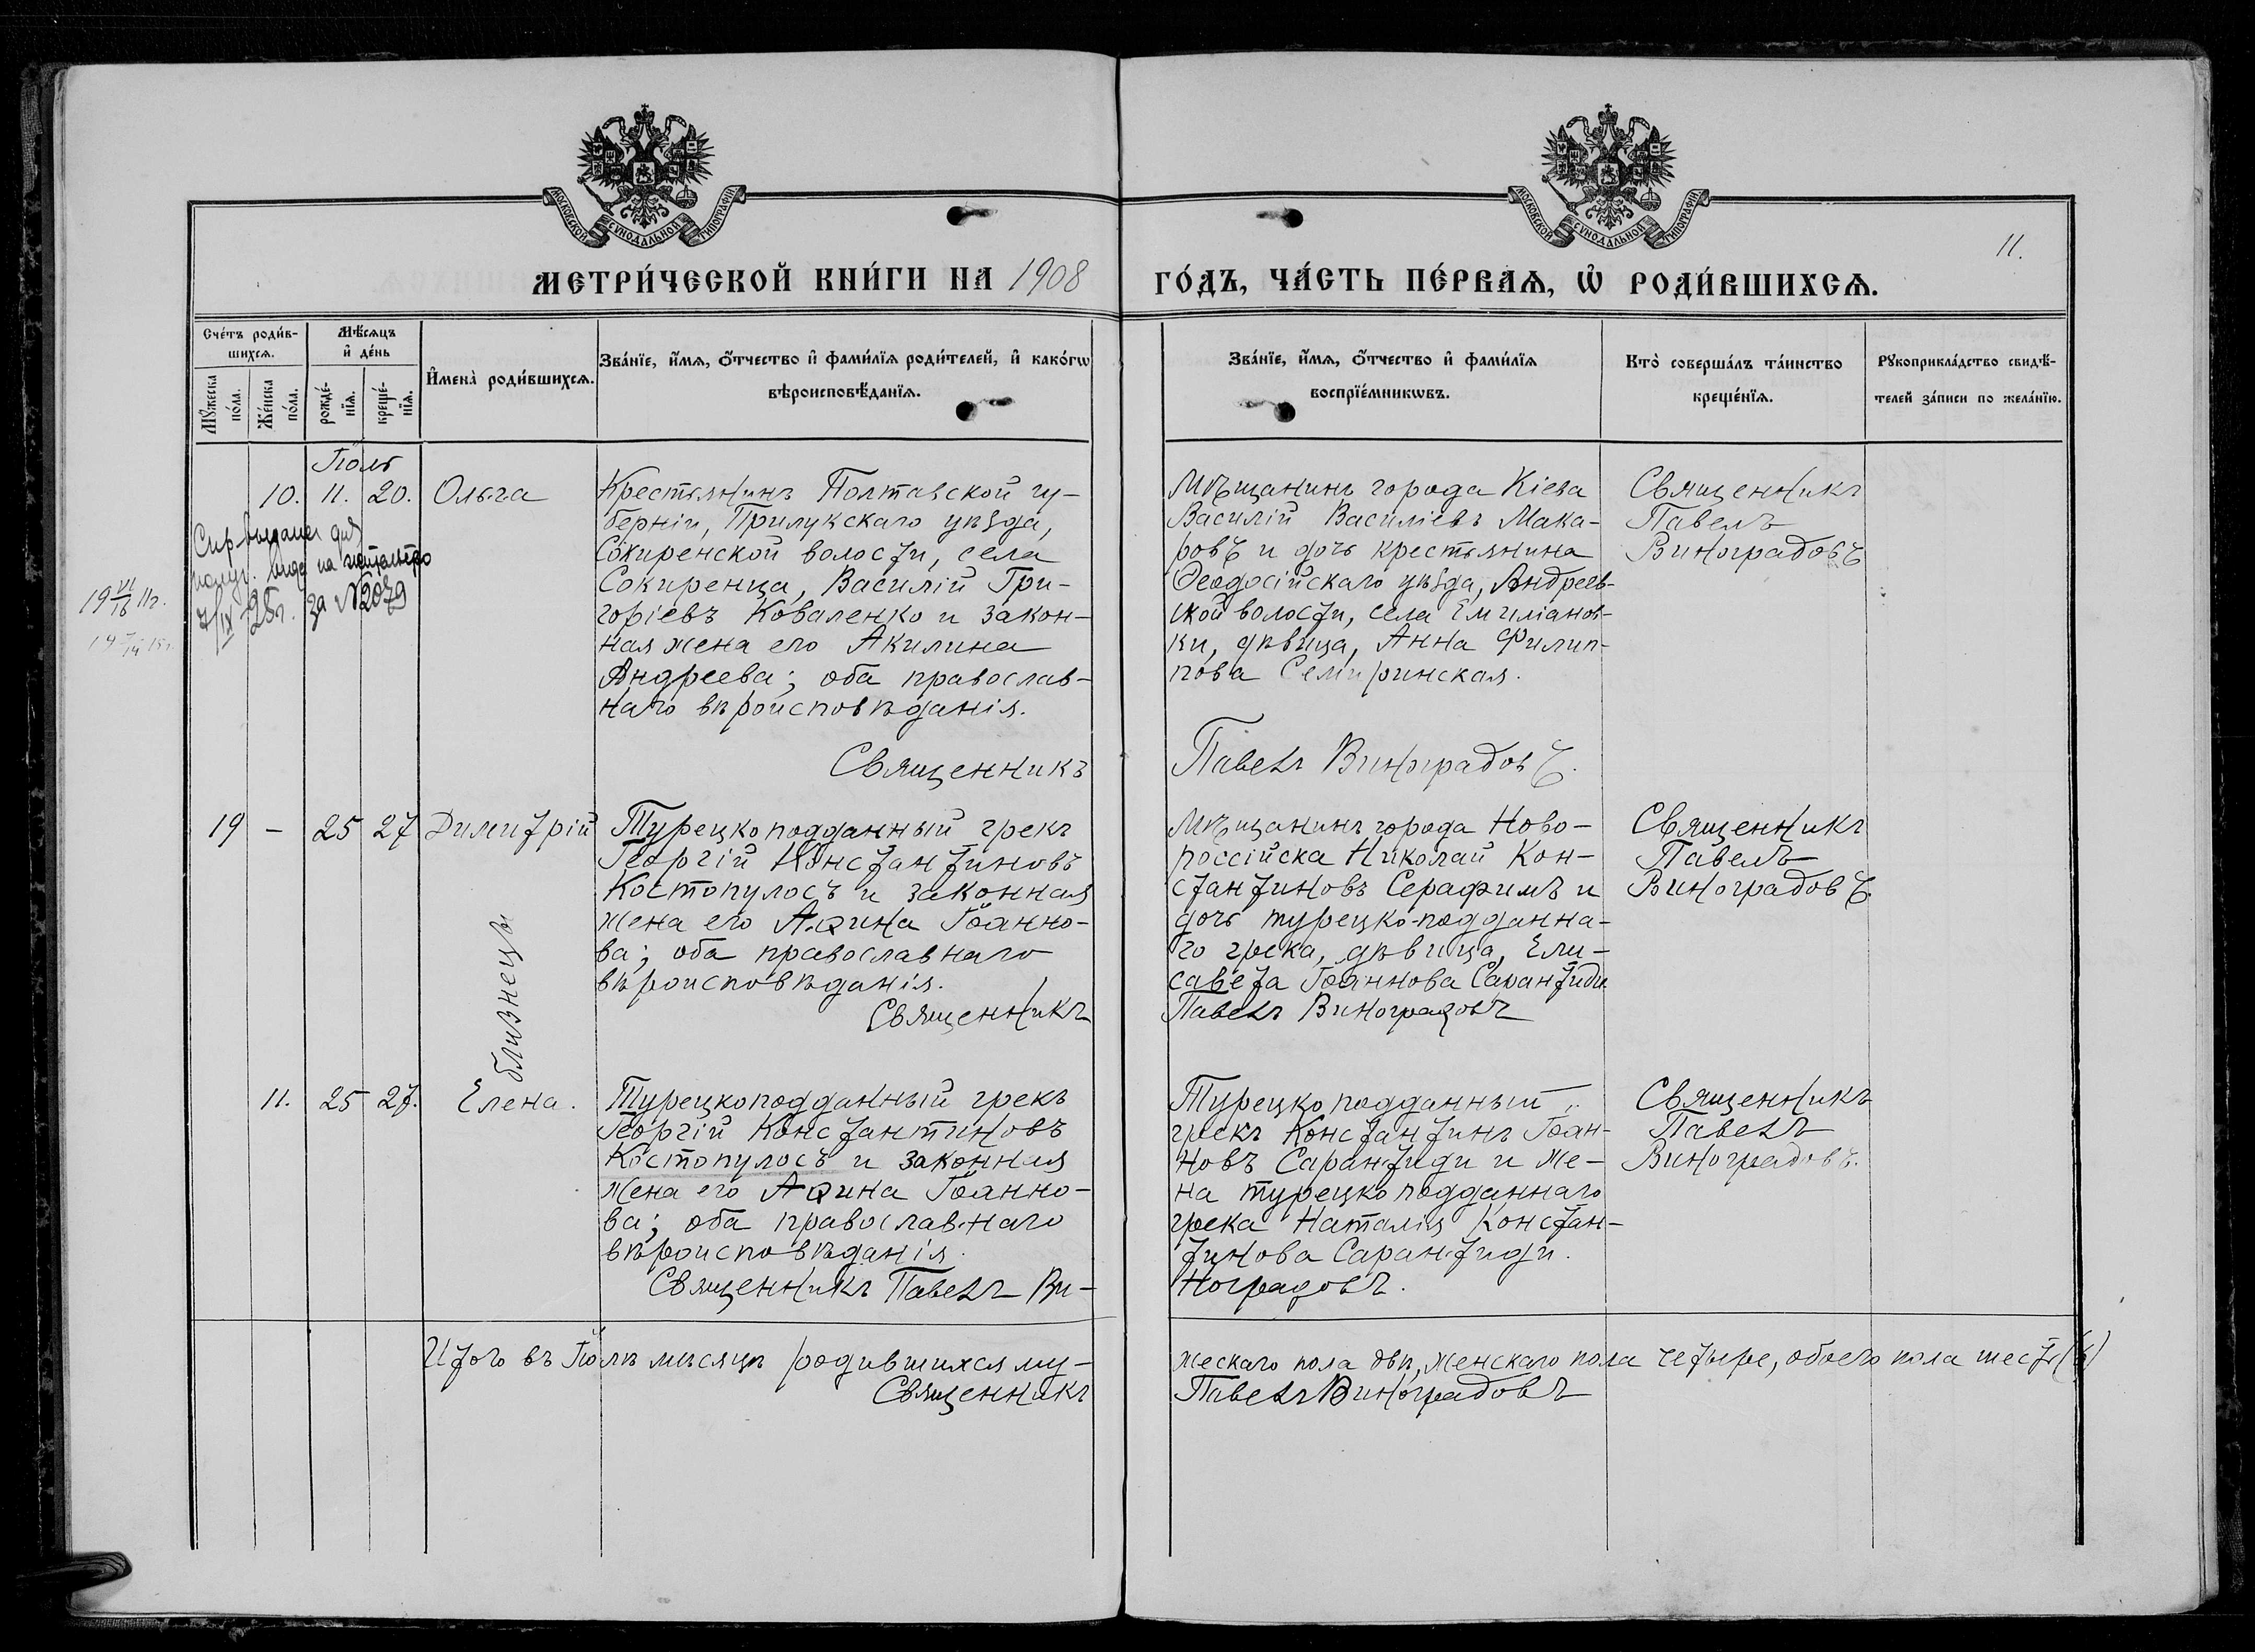 МОСКОВСКОЙ СУНОДАЛЬНОЙ ТИПОГРАФІИ
МОСКОВСКОЙ СУНОДАЛЬНОЙ ТИПОГРАФІИ
11.
МЕТРИ́ЧЕСКОЙ КНИ́ГИ НА 1908 ГО́ДЪ, ЧА́СТЬ ПЕ́РВАѦ, Ѡ҆ РОДИ́ВШИХСѦ.
Сче́тъ роди́в-
шихсѧ.
Мѹ́жеска
по́ла.
Же́нска
по́ла.
Мѣ́сѧцъ
и҆ де́нь
рожде́-
нїѧ.
креще́-
нїѧ.
И҆мена̀ роди́вшихсѧ.
Зва́нїе, и҆́мѧ, ѻ҆́тчество и҆ фами́лїѧ роди́телей, и҆ како́гѡ
вѣроисповѣ́данїѧ.
Зва́нїе, и҆́мѧ, ѻ҆́тчество и҆ фами́лїѧ
воспрїе́мникѡвъ.
Кто̀ соверша́лъ та́инство
креще́нїѧ.
Рѹкоприкла́дство свидѣ́-
телей за́писи по жела́нїю.
Іюль
10. 11. 20. Ольга
Крестьянинъ Полтавской гу-
берніи, Прилукскаго уѣзда,
Сокиренской волости, села
Сокиренца, Василій Гри-
горіевъ Коваленко и закон-
ная жена его Акилина
Андреева; оба православ-
наго вѣроисповѣданія.
Священникъ
Мѣщанинъ города Кіева
Василій Василіевъ Мака-
ровъ и дочь крестьянина
Ѳеодосійскаго уѣзда, Андреев-
ской волости, села Емиліанов-
ки, дѣвица, Анна Филип-
пова Семиринская.
Павелъ Виноградовъ.
Священникъ
Павелъ
Виноградовъ
Спр. выдана для
получ. вида на жительство
7/IX 25г. за №2079
19 VI/16 11г.
19 - 25 27 Димитрій
близнецы
Турецкоподданный грекъ
Георгій Константиновъ
Костопулосъ и законная
жена его Аѳина Іоанно-
ва; оба православнаго
вѣроисповѣданія.
Священникъ
Мѣщанинъ города Ново-
россійска Николай Кон-
стантиновъ Серафимъ и
дочь турецко-подданна-
го грека, дѣвица, Ели-
савета Іоаннова Сарантиди
Павелъ Виноградовъ
Священникъ
Павелъ
Виноградовъ.
11. 25 27. Елена.
Турецкоподданный грекъ
Георгій Константиновъ
Костопулосъ и законная
жена его Аѳина Іоанно-
ва; оба православнаго
вѣроисповѣданія.
Священникъ Павелъ Ви-
Турецко подданный
грекъ Константинъ Іоан-
новъ Сарантиди и же-
на турецко подданнаго
грека Наталія Констан-
тинова Сарантиди.
ноградовъ.
Священникъ
Павелъ
Виноградовъ.
Итого въ Іюлѣ мѣсяцѣ родившихся му-
жескаго пола два, женскаго пола четыре, обоего пола шесть (6)
Священникъ
Павелъ Виноградовъ